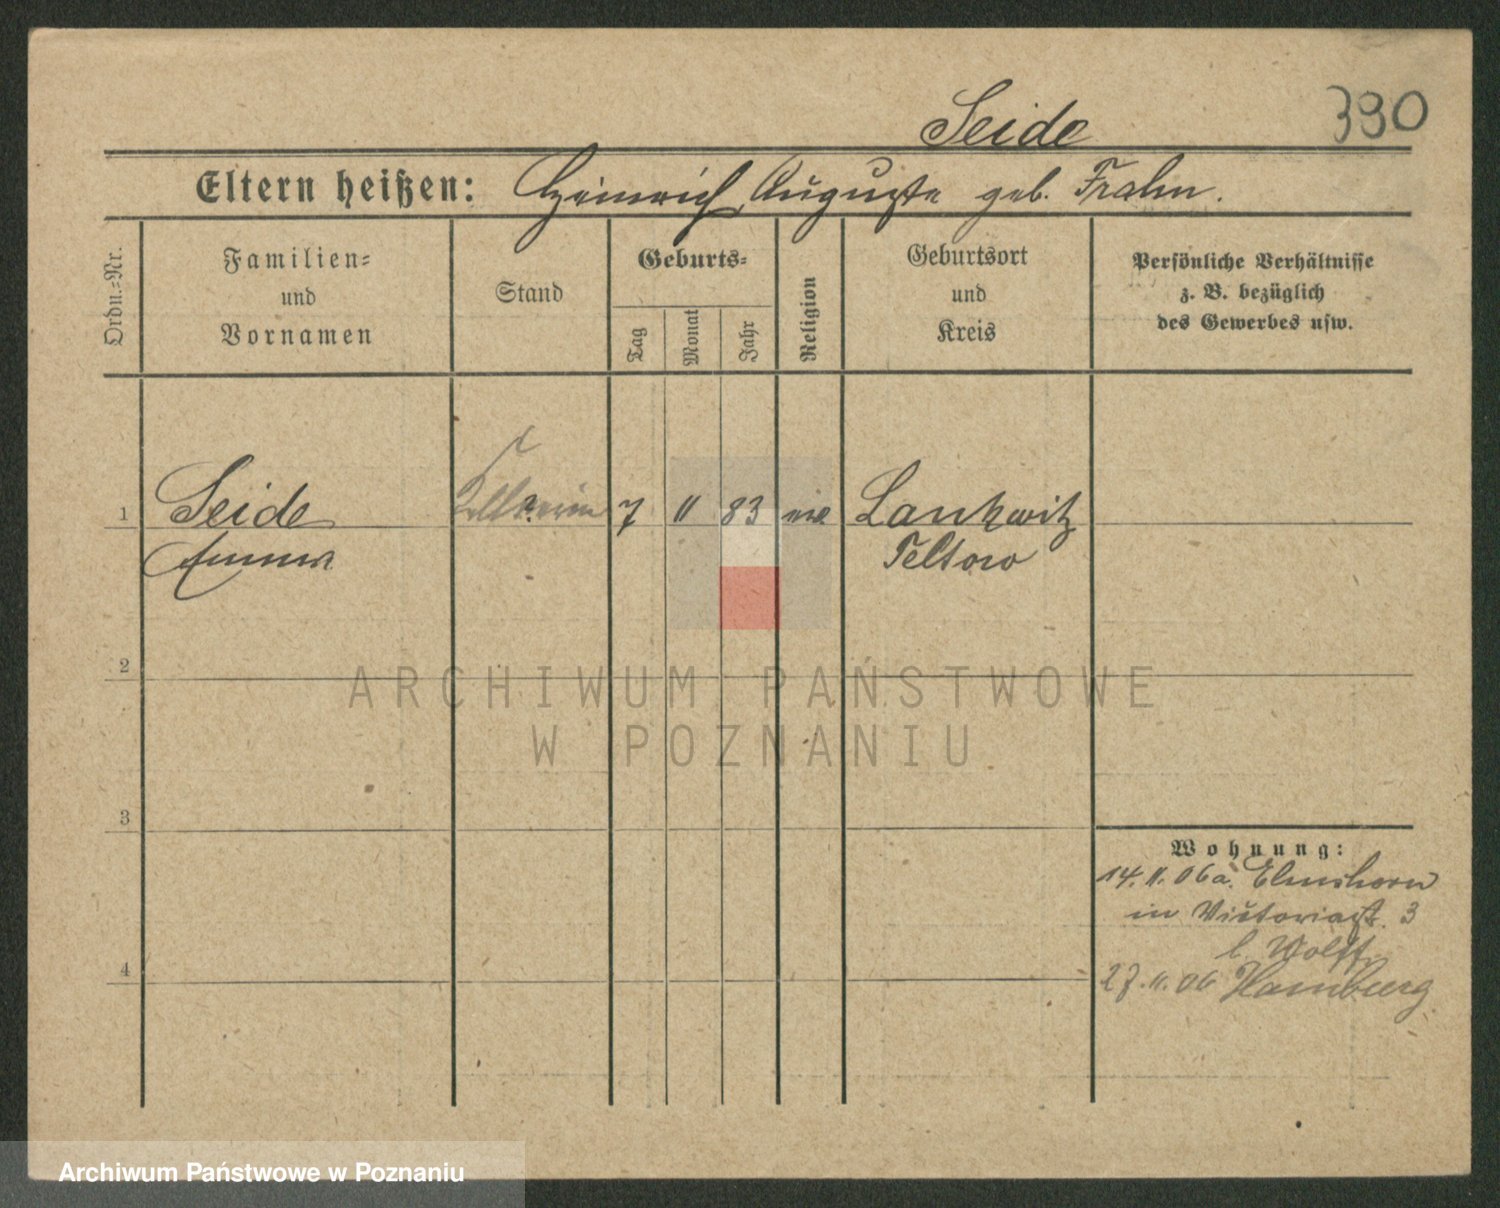 390
Seide
Eltern heißen: Heinrich, Auguste geb. Frahm.
Ordn.=Nr.
Familien=
und
Vornamen
Stand
Geburts=
Tag
Monat
Jahr
Religion
Geburtsort
und
Kreis
Persönliche Verhältnisse
z. B. bezüglich
des Gewerbes usw.
1
Seide
Emma
Kellnerin
7
11
83
Lankwitz
Teltow
2
3
4
Wohnung:
14. 11. 06 a. Elmshorn
in Viktoriast. 3
b. Wolff
27. 11. 06 Hamburg
ARCHIWUM PAŃSTWOWE
W POZNANIU
Archiwum Państwowe w Poznaniu